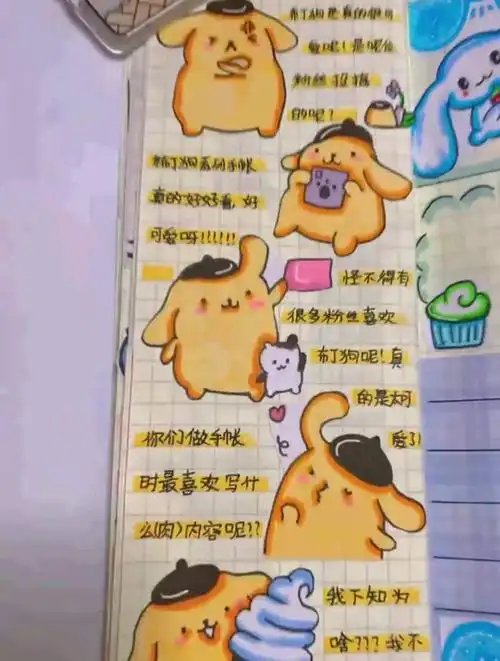 布丁狗是真的很可
爱呢！是呢位
粉丝投稿
的呢！
布丁狗系列手帐
真的好好看，好
可爱呀!!!!!!
怪不得有
很多粉丝喜欢
布丁狗呢！真
的是太可
爱了!
你们做手帐
时最喜欢写什
么(肉)内容呢??
我下知为
啥???我不